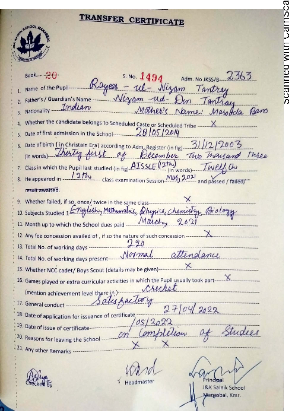 TRANSFER CERTIFICATE
Book 20 S. No. 1494 Adm. No. 2363
1. Name of the Pupil Rayees-ul-Nizam Tantray
2. Father's / Guardian's Name Nizam-ud-Din Tantray
3. Nationality Indian Mother's Name: Masooda Bano
4. Whether the candidate belongs to Scheduled Caste or Scheduled Tribe X
5. Date of first admission in the School 28/05/2019
6. Date of Birth (in Christian Era) according to Adm. Register (in fig) 31/12/2003
(in words) Thirty first of December Two Thousand Three
7. Class in which the Pupil last studied (in fig) AISSCE (12th) (in words) Twelfth
8. He appeared in 12th class examination Session May, 2021 and passed / failed
9. Whether failed, if so, once/ twice in the same class X
10. Subjects Studied English, Mathematics, Physics, Chemistry, Biology
11. Month up to which the School dues paid March, 2021
12. Any fee concession availed of, if so the nature of such concession X
13. Total No. of working days 220
14. Total No. of working days present Normal attendance
15. Whether NCC cadet/ Boys Scout (details may be given) X
16. Games played or extra curricular activities in which the Pupil usually took part
(mention achievement level there in) Cricket X
17. General conduct Satisfactory
18. Date of application for issuance of certificate 27/04/2022
19. Date of issue of certificate /05/2022
20. Reasons for leaving the School on Completion of Studies
21. Any other Remarks X X
Headmaster
Principal
Manasbal, Kmr.